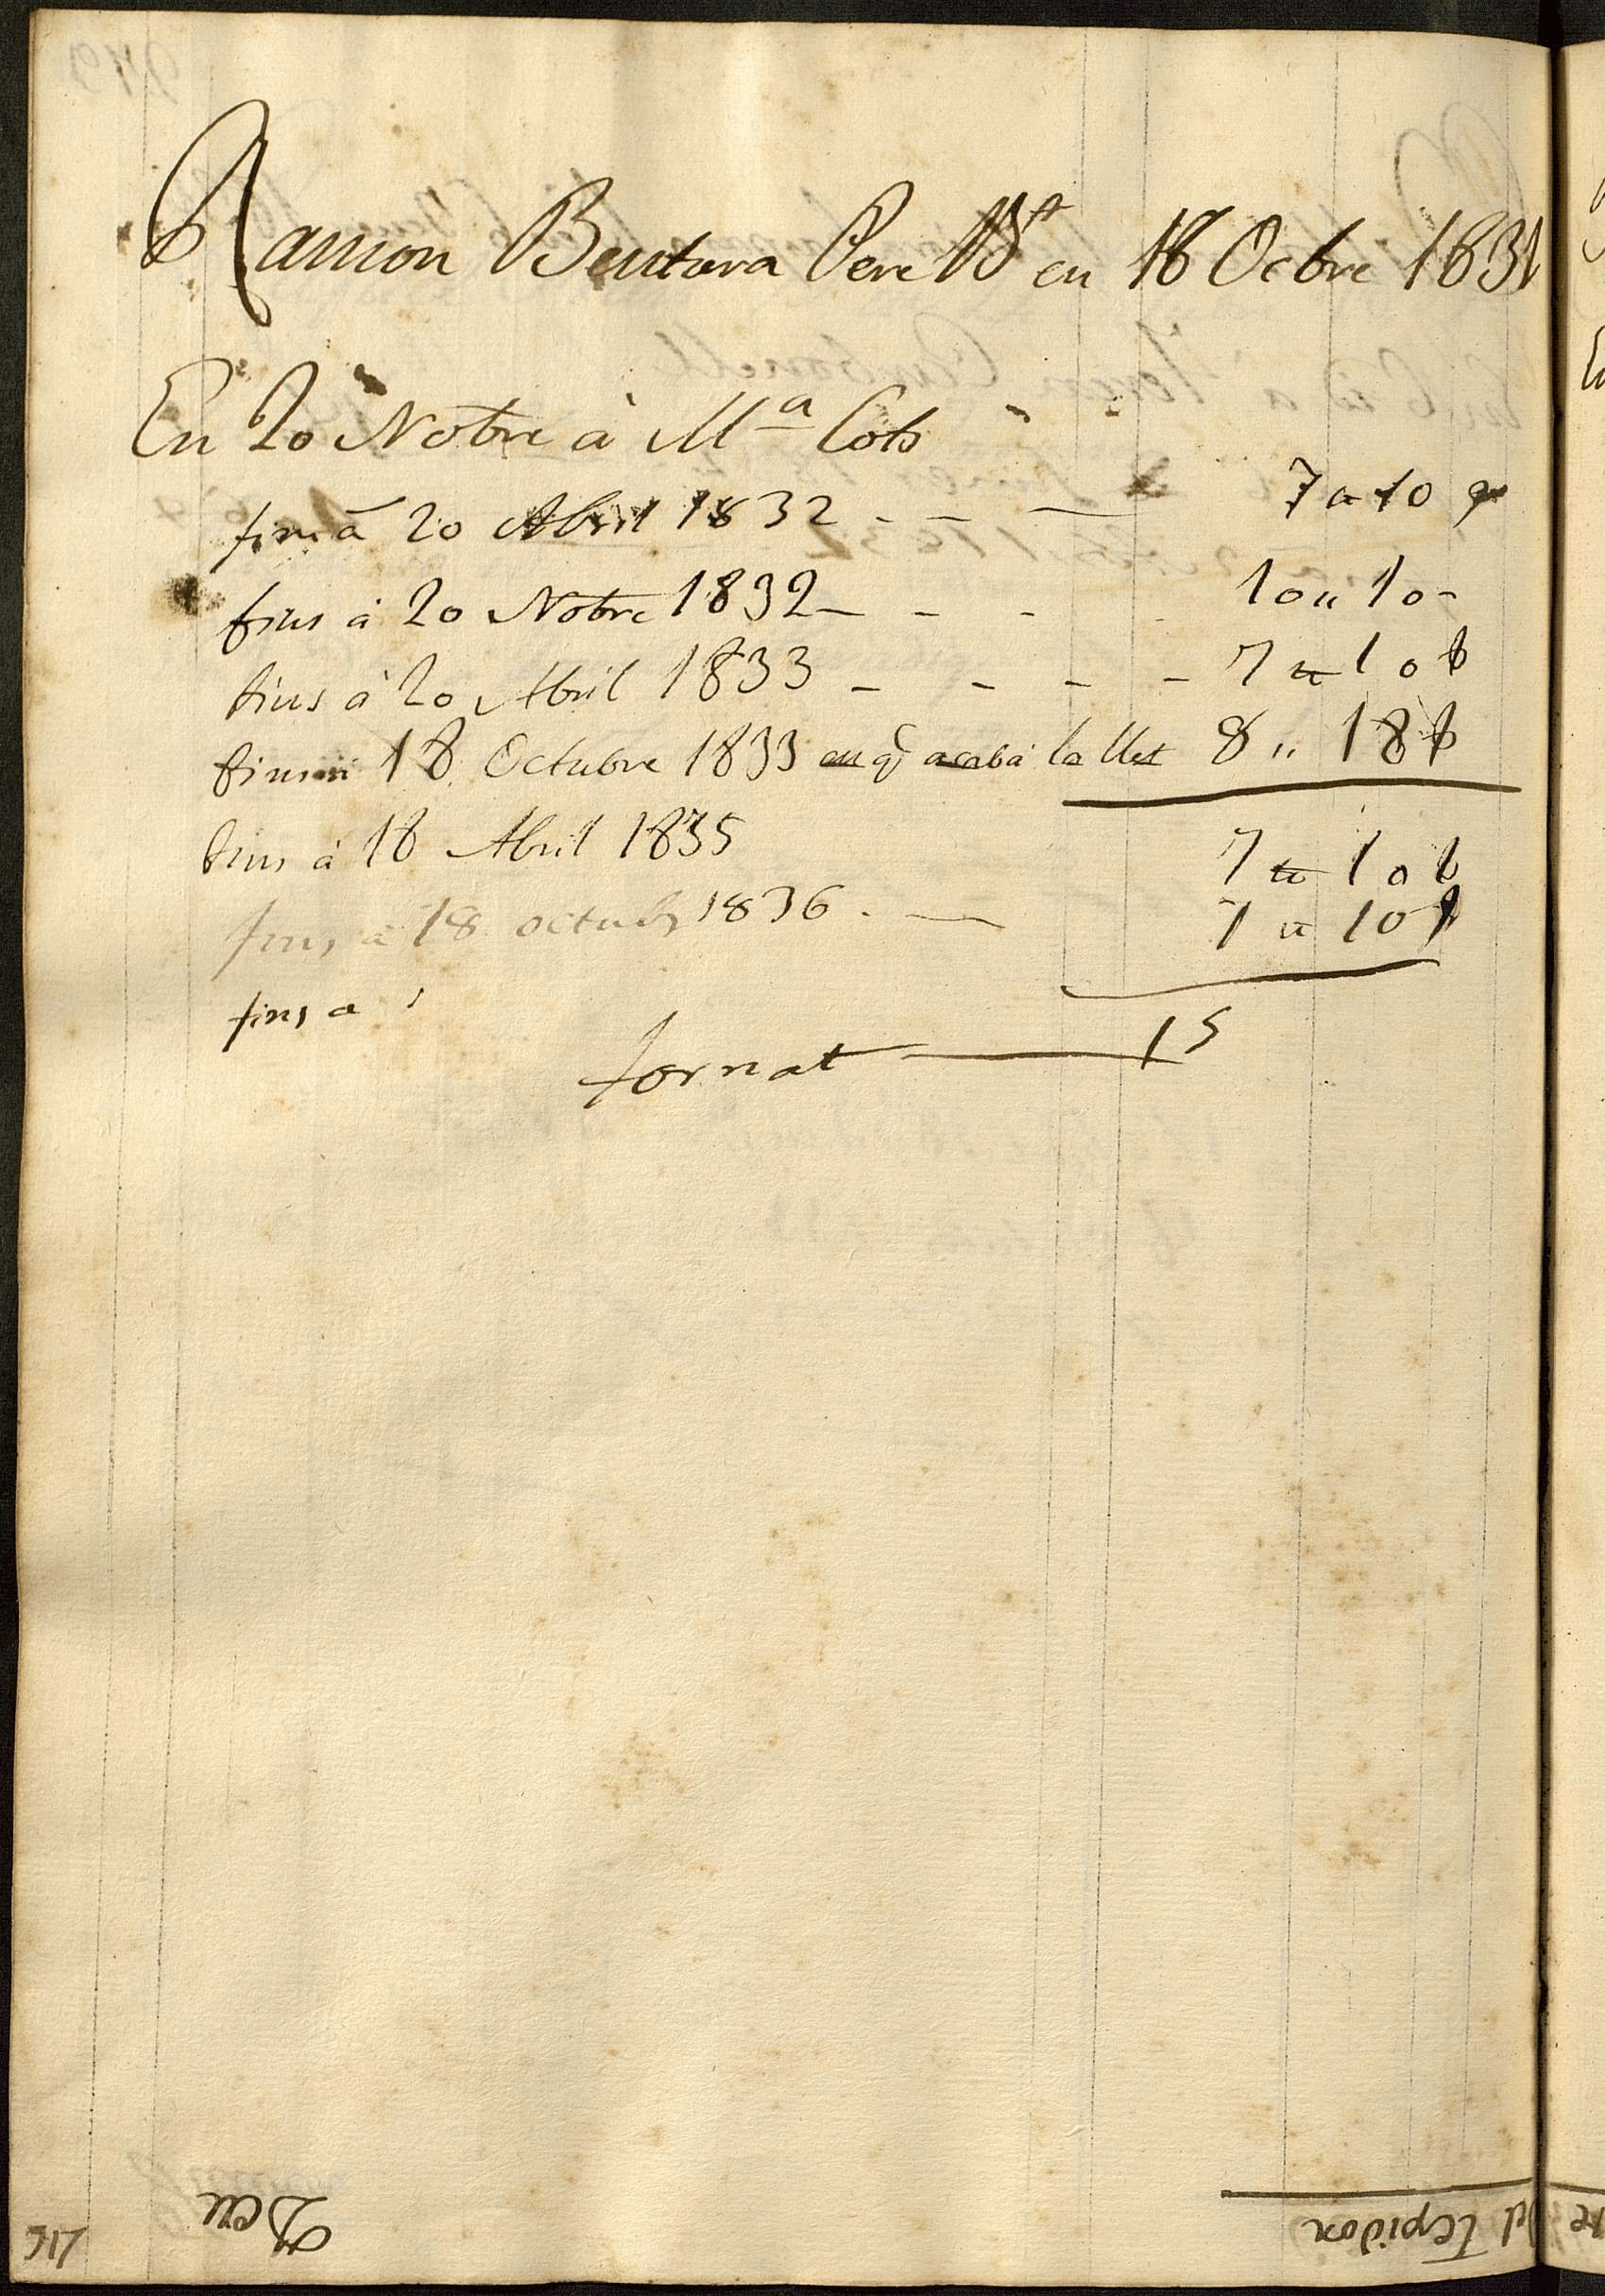 Ramon Bentura Pere Bta en 18 Ocbre 1831
En 20 Nobre à Ma Cols
fins à 20 Abril 1832 - - — 7 " 10
fins à 20 Nobre 1832 - - - 10 " 10 -
fins à 20 Abril 1833 - - - - 7 " 10 ß
fins 18 Octubre 1833 en q acaba la llet 8 " 18 ß
fins à 18 Abril 1835 7 " 10 ß
fins à 18 octubr 1836 . — 7 " 10 ß
fins a
tornat — 15
Deu
Tepidor